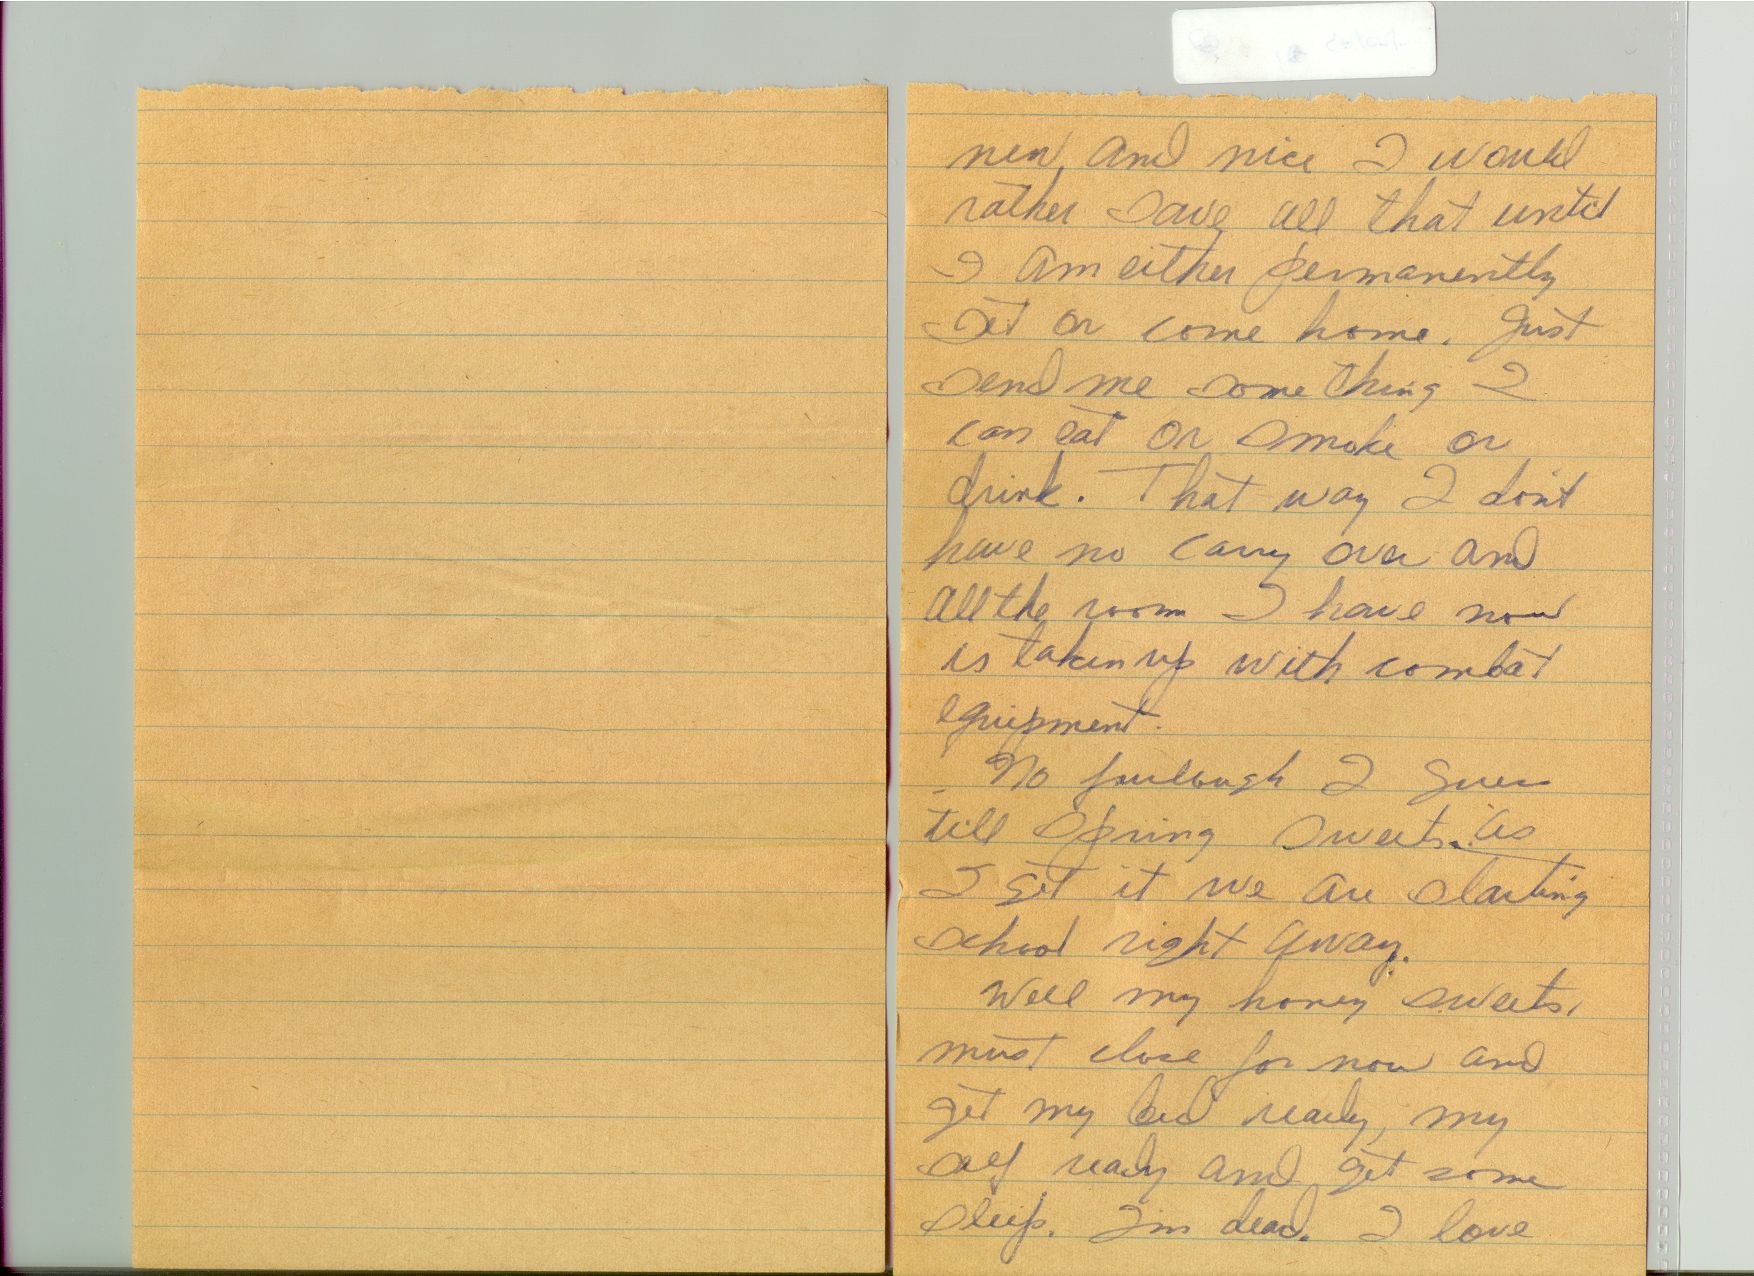 new and nice I would
rather save all that until
I am either permanently
set or come home. Just
send me something I
can eat or smoke or
drink. That way I don't
have no carry over and
all the room I have now
is taken up with combat
equipment.
No furlough I guess
till Spring Sweets. As
I get it we are starting
school right away.
Well my honey sweets,
must close for now and
get my bed ready, my
self ready and get some
sleep. I'm dead. I love